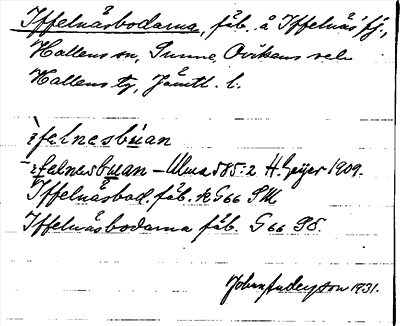 Iffelnåsbodarna, fäb. å Iffelnås' fj.,
Hallens sn, Sunne, Ovikens och
Hallens tg, Jämtl. l.
ɩfelnesbuan
ɩfelnesbuan – Ulma 585:2 H. Geijer 1909.
Iffelnåsbod. fäb. rk G66 SM
Iffelnåsbodarna fäb. G 66 SS.
Johan Anderson 1931.